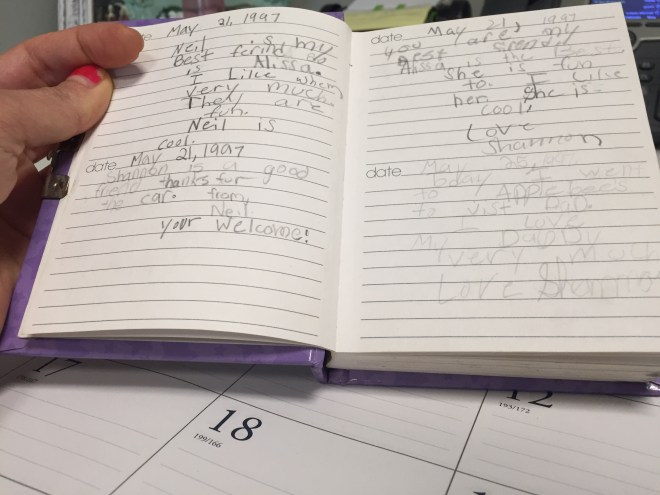 date May 21, 1997
Neil is my
Best ferind so
is Alissa.
I Like when
very much.
They are
fun.
Neil is
cool.
date May 21, 1997
Shannon is a good
friend thanks for
the car. from,
Neil
your welcome!
date May 21, 1997
you are my
Best
Alissa is the Best
She is fun
to. I Like
her She is
cool,
Love
Shannon
date May 25,
today I went
to Applebees
to vist Dad.
I Love
My Daddy
very Much
Love Shannon
17
18
199/166
12
193/172